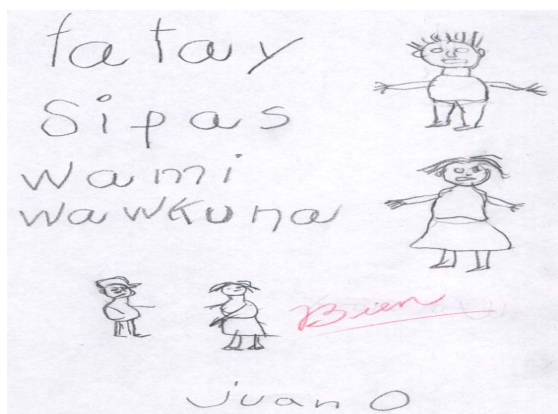 tatay
sipas
wami
wawkuna
Bien
juan O